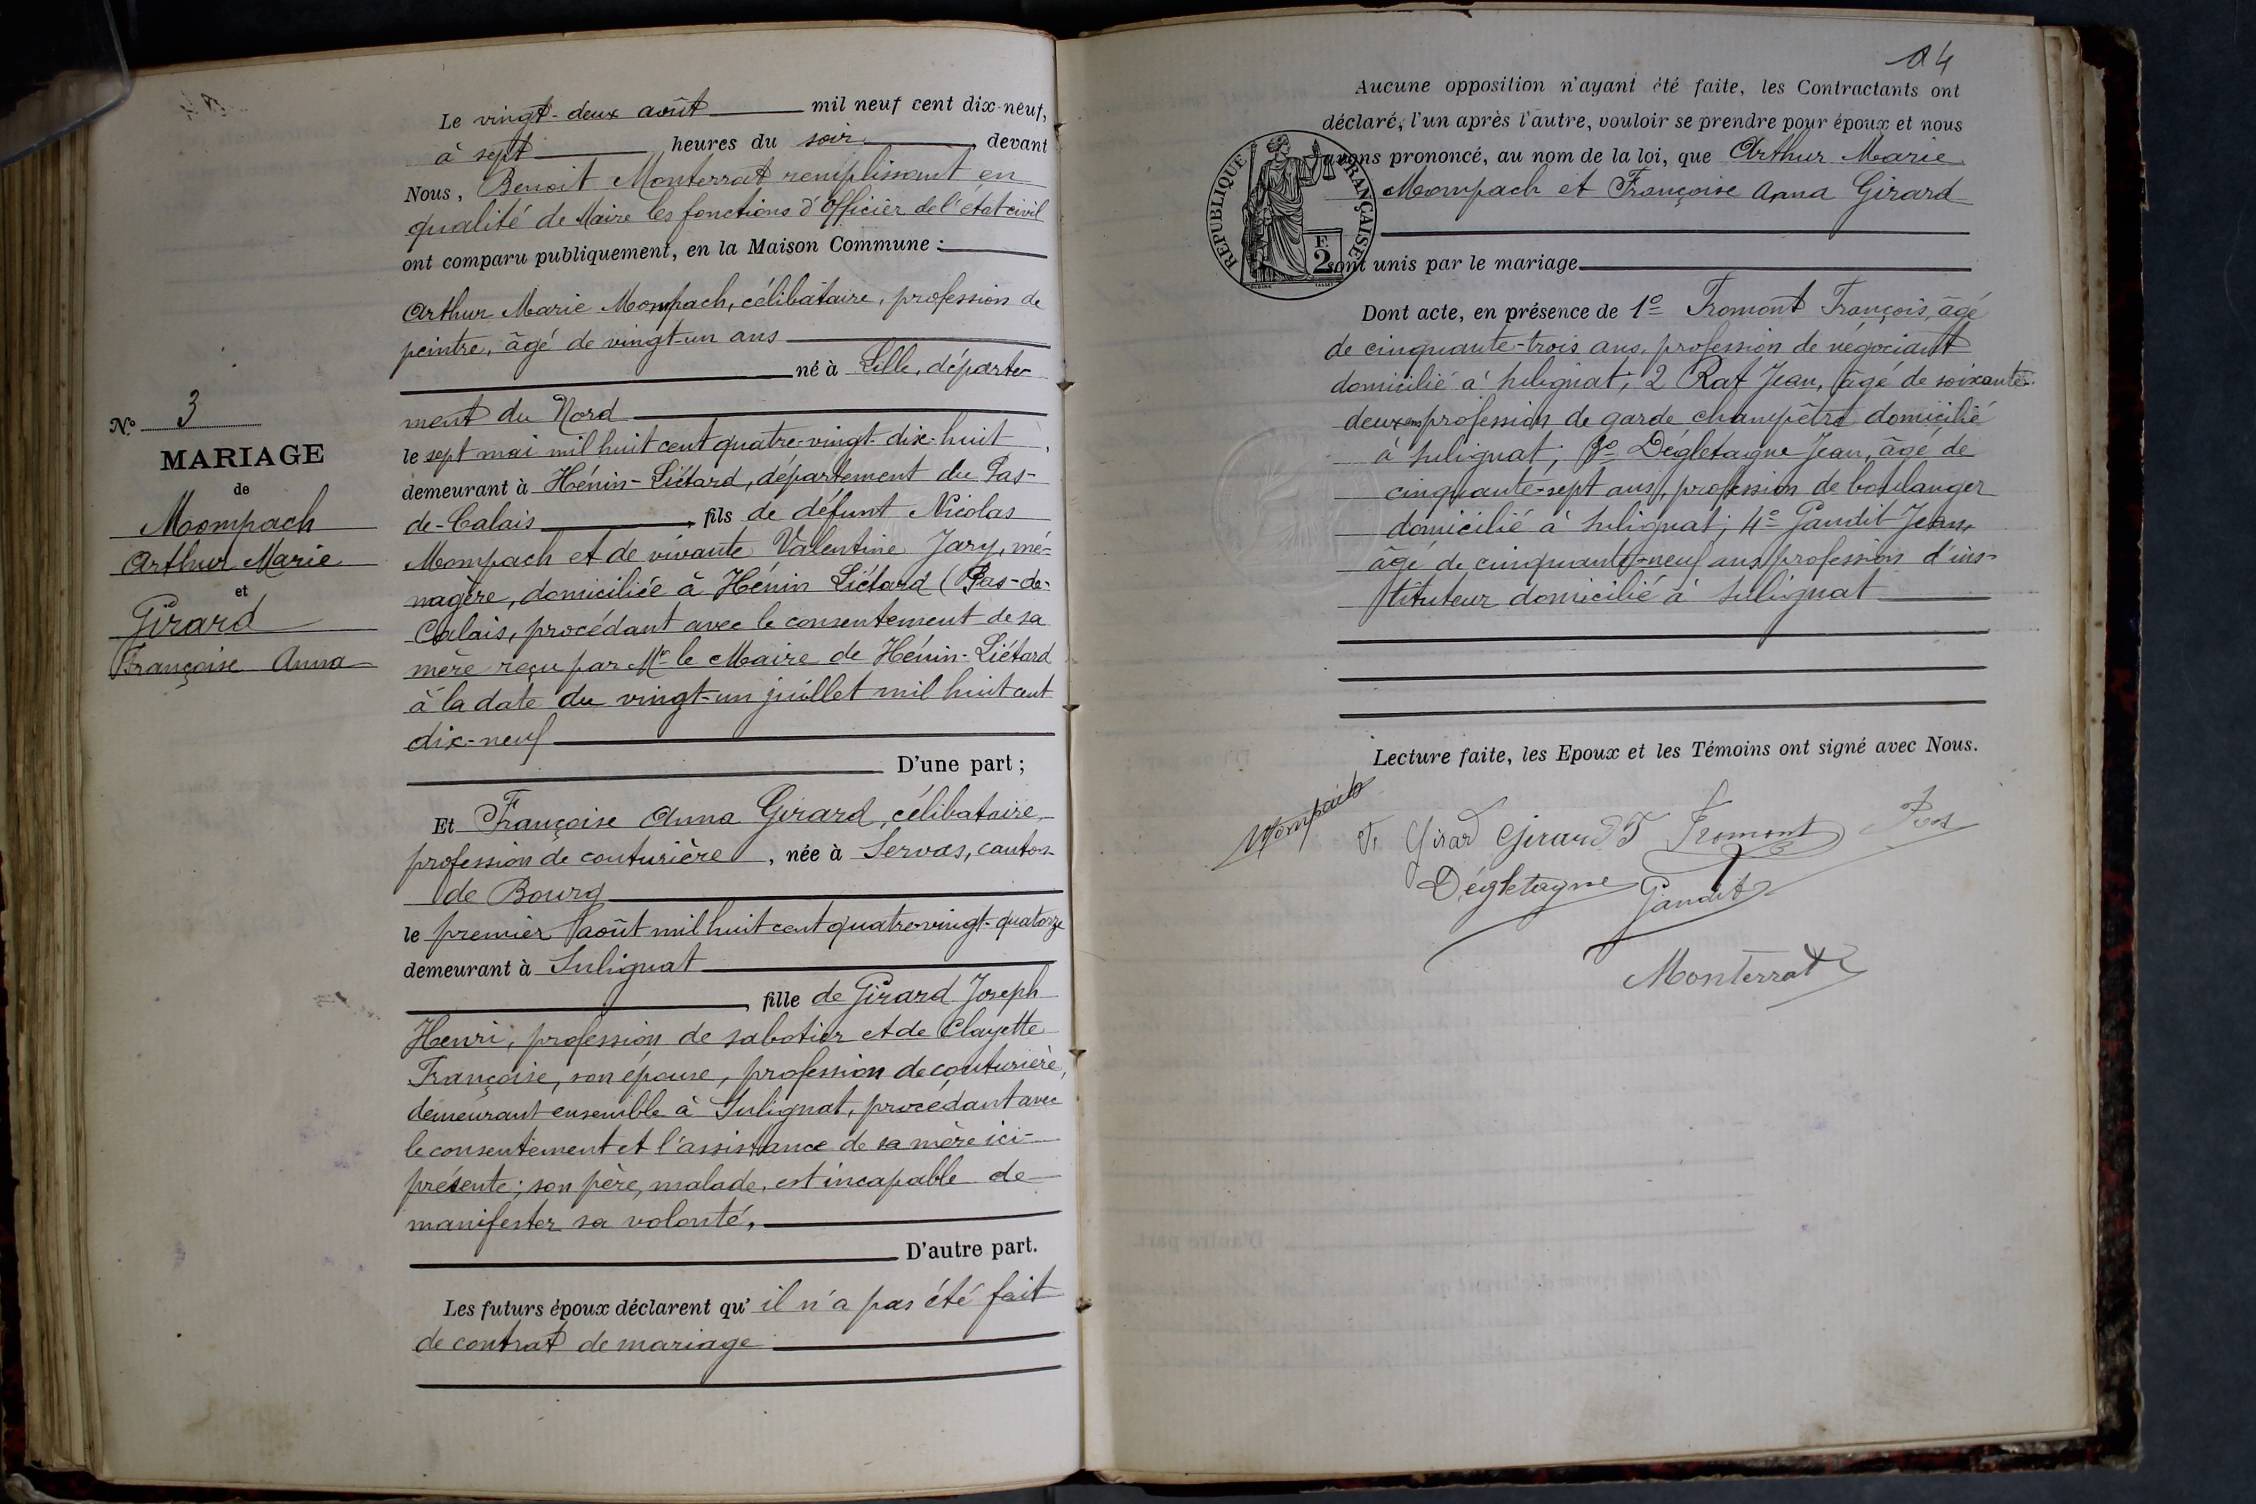 Le vingt-deux août mil neuf cent dix-neuf,
à sept heures du soir, devant
Nous, Benoit Monterrat remplissant en
qualité de Maire les fonctions d'Officier de l'état civil
ont comparu publiquement, en la Maison Commune :
Arthur Marie Mompach, célibataire, profession de
peintre, âgé de vingt-un ans
né à Lille, départe-
ment du Nord
le sept mai mil huit cent quatre-vingt-dix-huit,
demeurant à Hénin-Liétard, département du Pas-
de-Calais, fils de défunt Nicolas
Mompach et de vivante Valentine Jary, mé-
nagère, domiciliée à Hénin Liétard (Pas-de-
Calais, procédant avec le consentement de sa
mère reçu par Mr le Maire de Hénin-Liétard
à la date du vingt-un juillet mil huit cent
dix-neuf
D'une part ;
No 3
MARIAGE
de
Mompach
Arthur Marie
et
Girard
Françoise Anna
Et Françoise Anna Girard, célibataire,
profession de couturière, née à Servas, canton
de Bourg
le premier août mil huit cent quatre-vingt-quatorze
demeurant à Sulignat
, fille de Girard Joseph
Henri, profession de sabotier et de Clayette
Françoise, son épouse, profession de couturière,
demeurant ensemble à Sulignat, procédant avec
le consentement et l'assistance de sa mère ici-
présente; son père, malade, est incapable de
manifester sa volonté,
D'autre part.
Les futurs époux déclarent qu'il n'a pas été fait
de contrat de mariage
14
Aucune opposition n'ayant été faite, les Contractants ont
déclaré, l'un après l'autre, vouloir se prendre pour époux et nous
avons prononcé, au nom de la loi, que Arthur Marie
Mompach et Françoise Anna Girard
sont unis par le mariage
REPUBLIQUE FRANÇAISE
E
2
Dont acte, en présence de 1° Fromont François, âgé
de cinquante-trois ans, profession de négociant
domicilié à Sulignat; 2 Rat Jean, âgé de soixante-
deux ans profession de garde champêtre domicilié
à Sulignat; 3° Dégletagne Jean, âgé de
cinquante-sept ans, profession de boulanger
domicilié à Sulignat; 4° Gandit Jean,
âgé de cinquante-neuf ans profession d'ins-
tituteur domicilié à Sulignat
Lecture faite, les Epoux et les Témoins ont signé avec Nous.
Mompach
Girard Girard Fromont Rat
Dégletagne Gandit
Monterrat